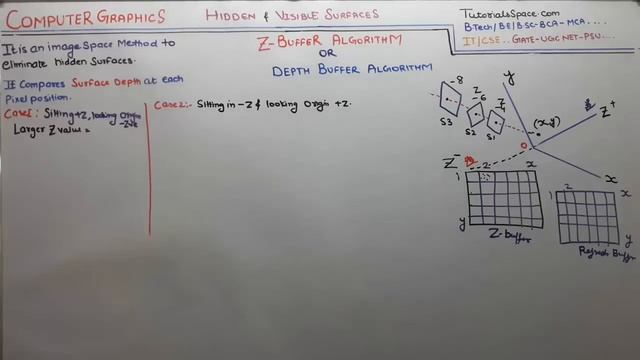 COMPUTER GRAPHICS
HIDDEN & VISIBLE SURFACES
Z-BUFFER ALGORITHM
OR
DEPTH BUFFER ALGORITHM
TutorialsSpace.com
B-Tech/BE/BSC-BCA-MCA....
IT/CSE..GATE-UGC NET-PSU....
It is an image Space Method to
eliminate hidden Surfaces.
It Compares Surface Depth at each
Pixel position.
Case1: Sitting +Z, looking Origin
-Z
Larger Z value =
Case2:- Sitting in -Z & looking Origin +Z.
-8
Z
-6
Z
-4
S3
S2
S1
y
(x,y)
Z+
0
x
Z-
1
2
x
y
Z-buffer
1
2
x
y
Refresh Buffer